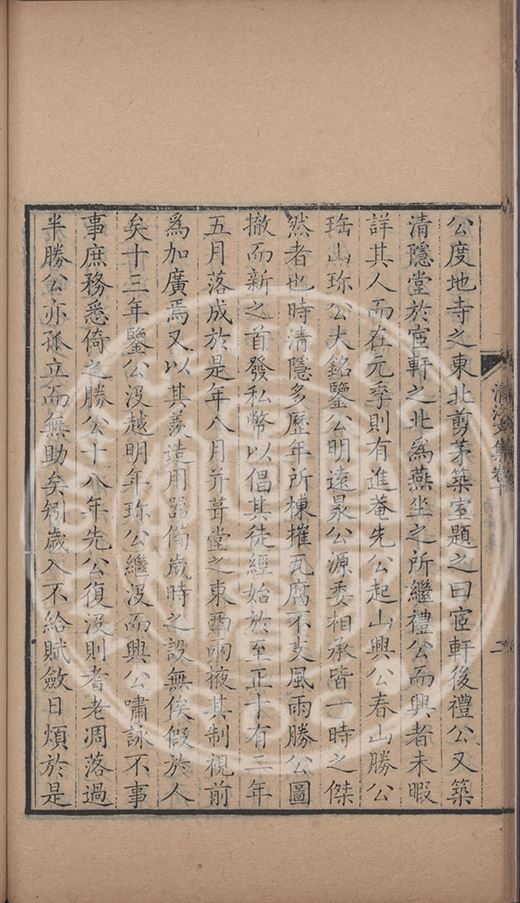 公度地寺之東北剪茅築室題之曰宦軒後禮公又築
清隱堂於宦軒之北為燕坐之所繼禮公而興者未暇
詳其人而在元季則有進菴先公起山興公春山勝公
珤山珎公大銘鑒公明遠泉公源委相承皆一時之傑
然者也時清隱多歷年所棟摧瓦腐不支風雨勝公圖
撤而新之首發私幣以倡其徒經始於至正十有二年
五月落成於是年八月并葺堂之東西兩掖其制視前
爲加廣焉又以其羨造用器俻歲時之設無俟假於人
矣十三年鑒公沒越明年珎公繼沒而興公嘯詠不事
事庶務悉倚之勝公十八年先公復沒則耆老凋落過
半勝公亦孤立而無助矣矧歲入不給賦斂日煩於是